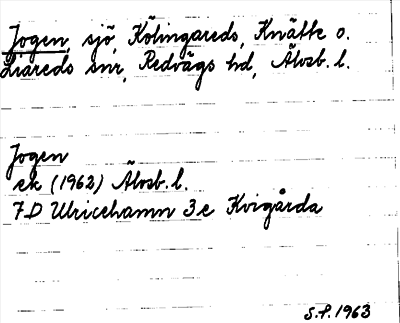 Jogen, sjö, Kölingareds, Knätte o.
Liareds snr, Redvägs hd, Älvsb. l.
Jogen
ek (1962) Älvsb. l.
7D Ulricehamn 3e Kvigårda
S.P. 1963